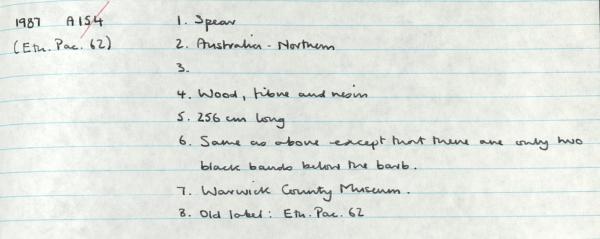 1987 A154 1. Spear
(Eth. Pac. 62) 2. Australia - Northern
3.
4. Wood, fibre and resin
5. 256 cm long
6. Same as above except that there are only two
black bands below the barb.
7. Warwick County Museum.
8. Old label: Eth. Pac. 62